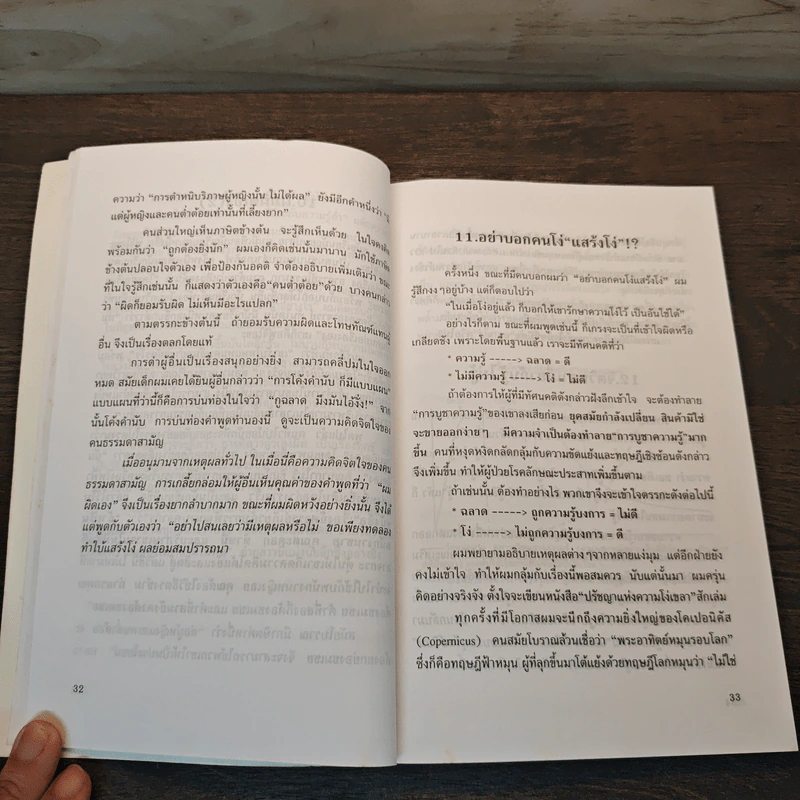 ความว่า “การตำหนิบริภาษผู้หญิงนั้น ไม่ได้ผล” ยังมีอีกคำหนึ่งว่า
แต่ผู้หญิงและคนต่ำต้อยเท่านั้นที่เลี้ยงยาก”
คนส่วนใหญ่เห็นภาษิตข้างต้น จะรู้สึกเห็นด้วย ในใจ
พร้อมกันว่า “ถูกต้องยิ่งนัก” ผมเองก็คิดเช่นนั้นมานาน มักใช้
ข้างต้นปลอบใจตัวเอง เพื่อป้องกันอคติ จำต้องอธิบายเพิ่มเติมว่า
ที่ในใจรู้สึกเช่นนั้น ก็แสดงว่าตัวเองคือ“คนต่ำต้อย”ด้วย บางคนกล่าว
ว่า “ผิดก็ยอมรับผิด ไม่เห็นมีอะไรแปลก”
ตามตรรกะข้างต้นนี้ ถ้ายอมรับความผิดและโทษทัณฑ์แทนผู้
อื่น จึงเป็นเรื่องตลกโดยแท้
การด่าผู้อื่นเป็นเรื่องสนุกอย่างยิ่ง สามารถคลี่ปมในใจออก
หมด สมัยเด็กผมเคยได้ยินผู้อื่นกล่าวว่า “การโค้งคำนับ ก็มีแบบแผน”
แบบแผนที่ว่านี้ก็คือการบ่นท่องในใจว่า “กูฉลาด มึงมันไอ้งั่ง!” จาก
นั้นโค้งคำนับ การบ่นท่องคำพูดทำนองนี้ ดูจะเป็นความคิดจิตใจของ
คนธรรมดาสามัญ
เมื่ออนุมานจากเหตุผลทั่วไป ในเมื่อนี่คือความคิดจิตใจของคน
ธรรมดาสามัญ การเกลี้ยกล่อมให้ผู้อื่นเห็นคุณค่าของคำพูดที่ว่า “ผม
ผิดเอง” จึงเป็นเรื่องยากลำบากมาก ขณะที่ผมผิดหวังอย่างยิ่งนั้น จึงได้
แต่พูดกับตัวเองว่า “อย่าไปสนเลยว่ามีเหตุผลหรือไม่ ขอเพียงทดลอง
ทำใบ้แสร้งโง่ ผลย่อมสมปรารถนา
32
11.อย่าบอกคนโง่“แสร้งโง่”!?
ครั้งหนึ่ง ขณะที่มีคนบอกผมว่า “อย่าบอกคนโง่แสร้งโง่” ผม
รู้สึกงงๆอยู่บ้าง แต่ก็ตอบไปว่า
“ในเมื่อโง่อยู่แล้ว ก็บอกให้เขารักษาความโง่ไว้ เป็นอันใช้ได้”
อย่างไรก็ตาม ขณะที่ผมพูดเช่นนี้ ก็เกรงจะเป็นที่เข้าใจผิดหรือ
เกลียดชัง เพราะโดยพื้นฐานแล้ว เราจะมีทัศนคติที่ว่า
* ความรู้ -----> ฉลาด = ดี
* ไม่มีความรู้ -----> โง่ = ไม่ดี
ถ้าต้องการให้ผู้ที่มีทัศนคติดังกล่าวฝังลึกเข้าใจ จะต้องทำลาย
“การบูชาความรู้”ของเขาลงเสียก่อน ยุคสมัยกำลังเปลี่ยน สินค้ามิใช่
จะขายออกง่ายๆ มีความจำเป็นต้องทำลาย“การบูชาความรู้”มาก
ขึ้น คนที่หงุดหงิดกลัดกลุ้มกับความขัดแย้งและทฤษฎีเชิงซ้อนดังกล่าว
จึงเพิ่มขึ้น ทำให้ผู้ป่วยโรคลักษณะประสาทเพิ่มขึ้นตาม
ถ้าเช่นนั้น ต้องทำอย่างไร พวกเขาจึงจะเข้าใจตรรกะดังต่อไปนี้
* ฉลาด -----> ถูกความรู้บงการ = ไม่ดี
* โง่ -----> ไม่ถูกความรู้บงการ = ดี
ผมพยายามอธิบายเหตุผลต่างๆจากหลายแง่มุม แต่อีกฝ่ายยัง
คงไม่เข้าใจ ทำให้ผมกลุ้มกับเรื่องนี้พอสมควร นับแต่นั้นมา ผมครุ่น
คิดอย่างจริงจัง ตั้งใจจะเขียนหนังสือ“ปรัชญาแห่งความโง่เขลา”สักเล่ม
ทุกครั้งที่มีโอกาสผมจะนึกถึงความยิ่งใหญ่ของโคเปอนิคัส
(Copernicus) คนสมัยโบราณล้วนเชื่อว่า “พระอาทิตย์หมุนรอบโลก”
ซึ่งก็คือทฤษฎีฟ้าหมุน ผู้ที่ลุกขึ้นมาโต้แย้งด้วยทฤษฎีโลกหมุนว่า “ไม่ใช่
33